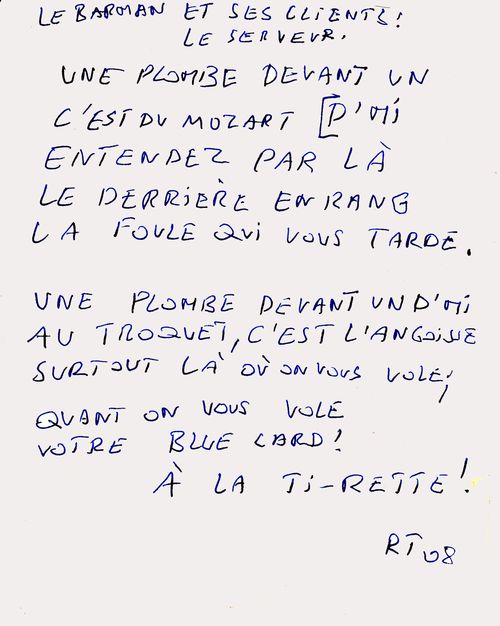 LE BARMAN ET SES CLIENTS!
LE SERVEUR.
UNE PLOMBE DEVANT UN
C'EST DU MOZART [D'Mi
ENTENDEZ PAR LÀ
LE DERRIÈRE EN RANG
LA FOULE QUI VOUS TARDE.
UNE PLOMBE DEVANT UN D'Mi
AU TROQUET, C'EST L'ANGOISSE
SURTOUT LÀ OÙ ON VOUS VOLE;
QUANT ON VOUS VOLE
VOTRE BLUE CARD!
À LA Ti-RETTE!
RT 08